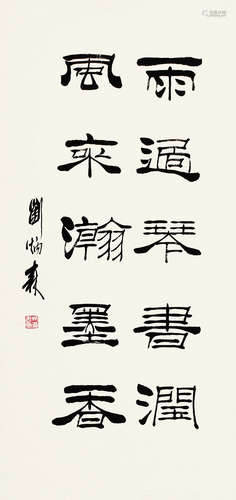 雨過琴書潤
風來瀚墨香
劉炳森